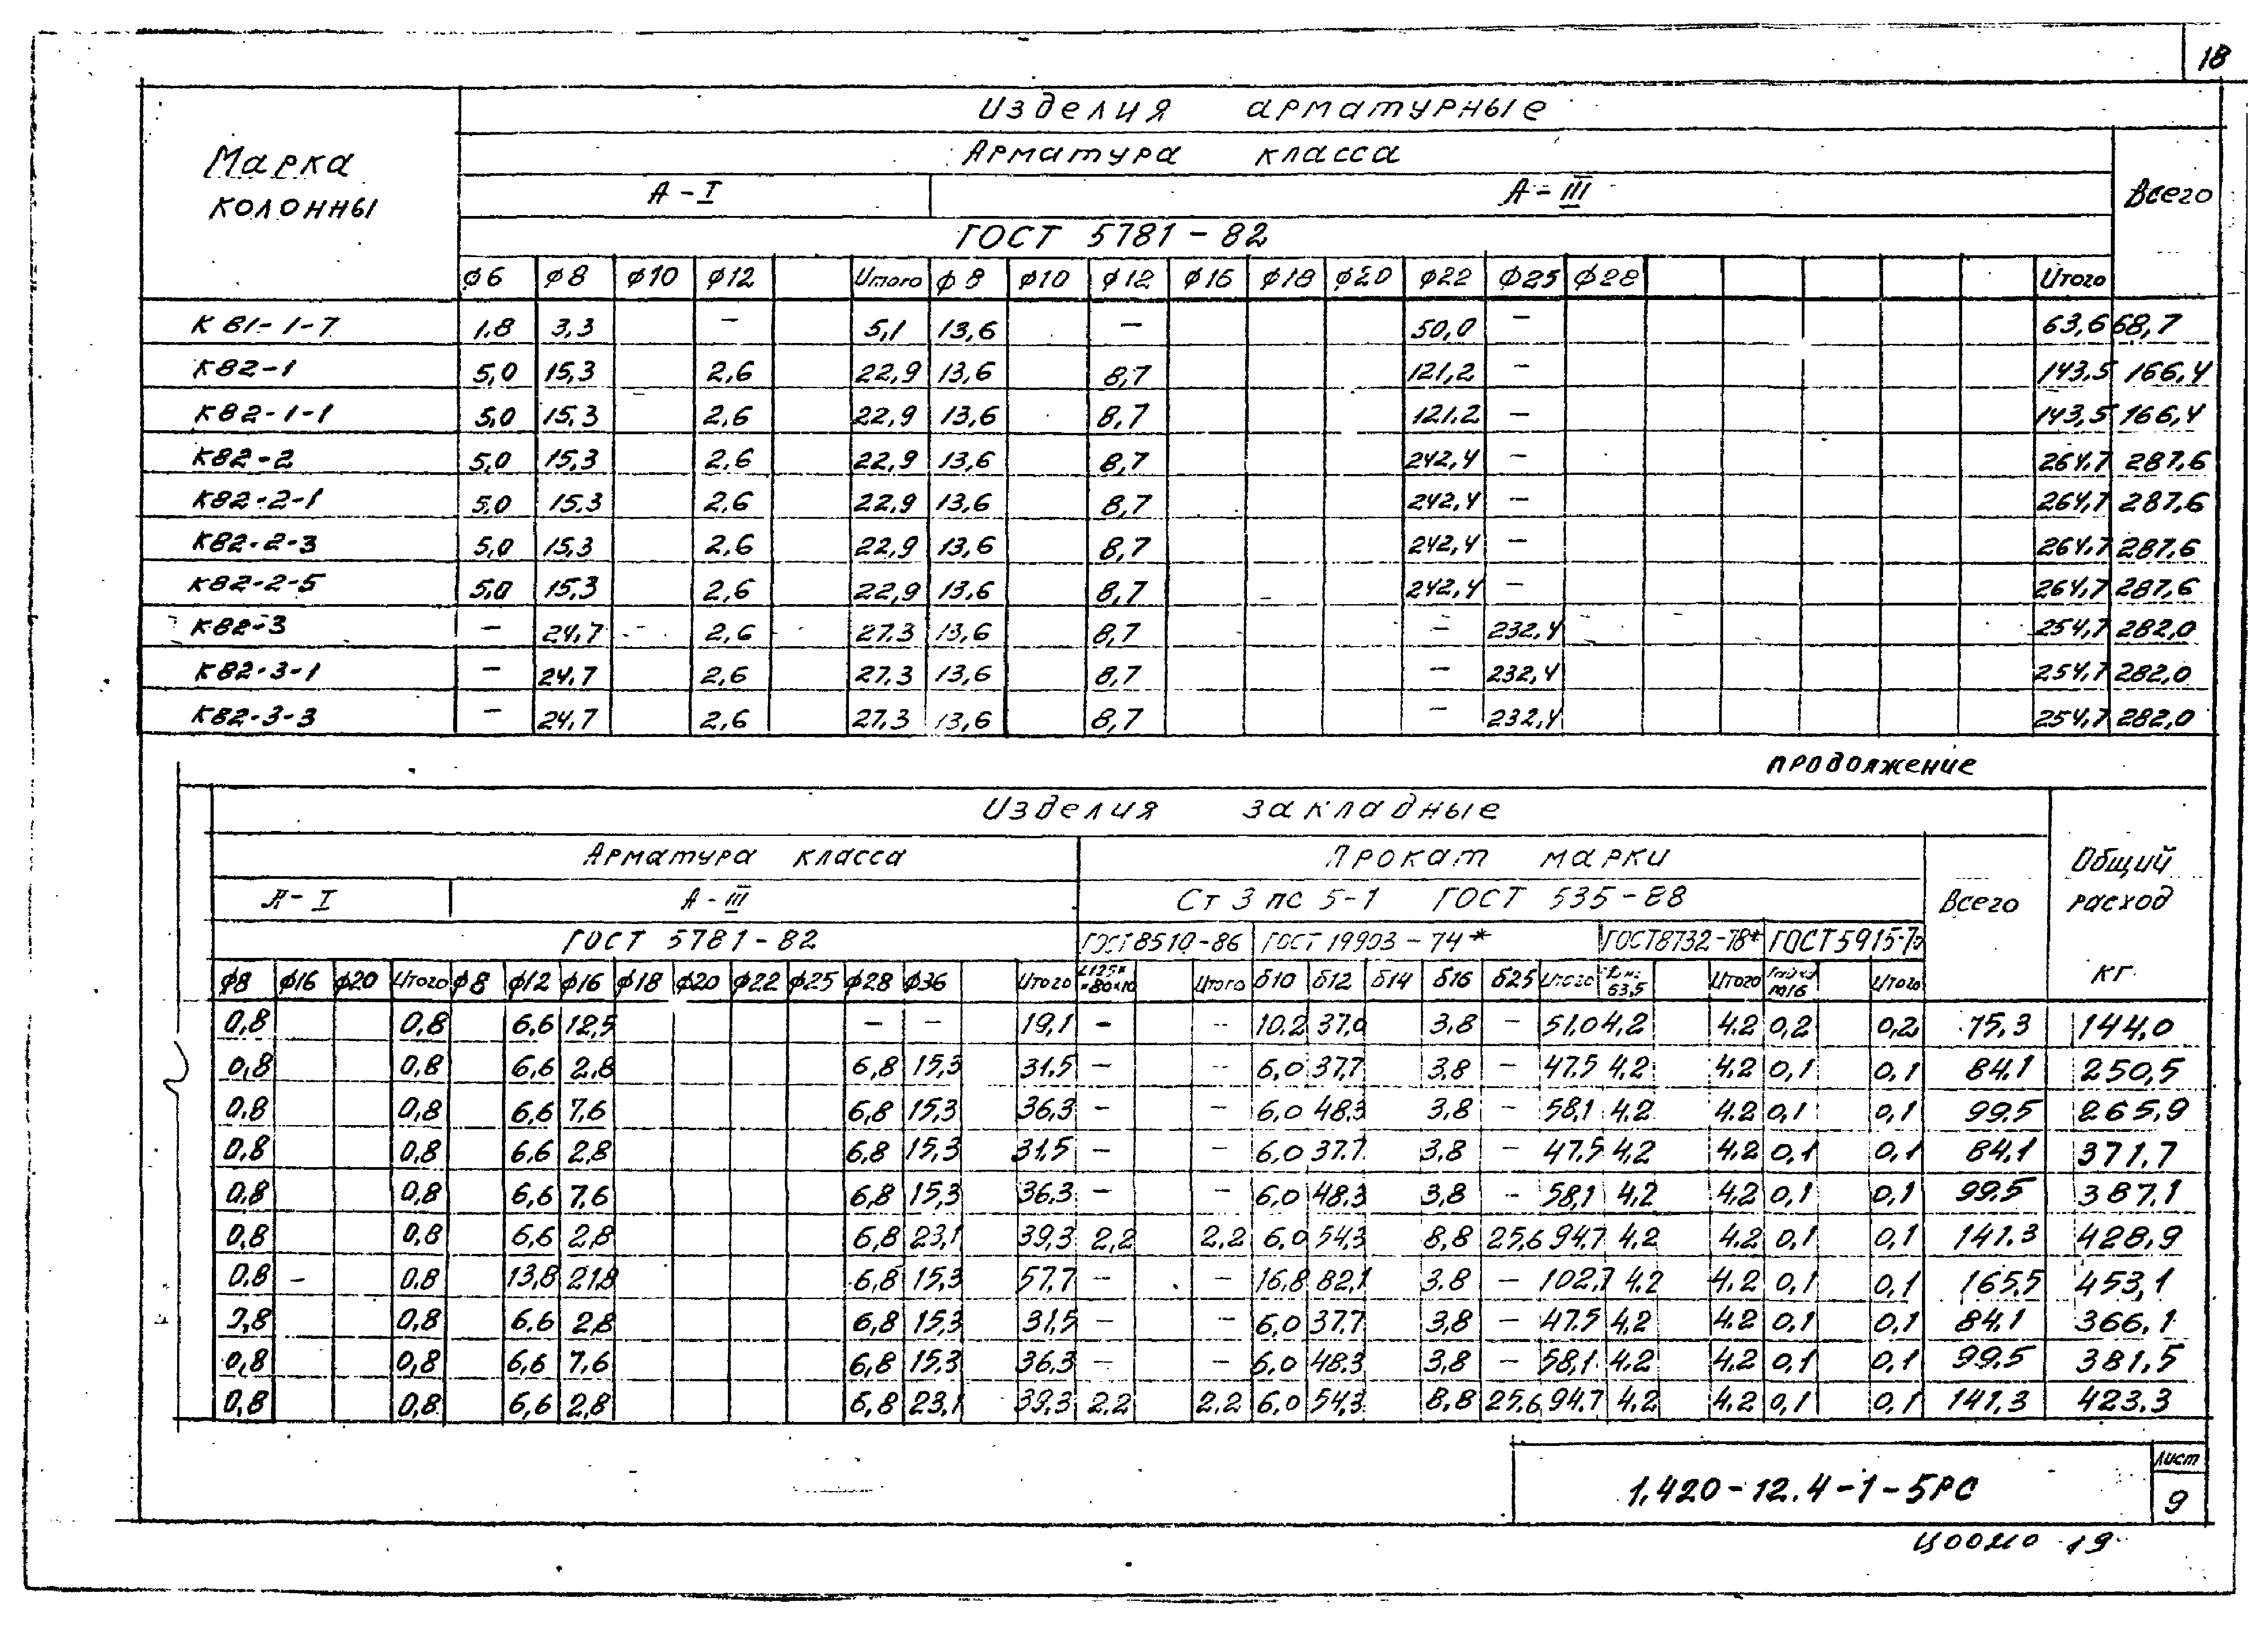 18
Изделия арматурные
Марка колонны
Арматура класса
Всего
А-I А-III
ГОСТ 5781-82
ф6 ф8 ф10 ф12 Итого ф8 ф10 ф12 ф16 ф18 ф20 ф22 ф25 ф28 Итого
К81-1-7 1.8 3,3 – 5,1 13,6 – 50,0 – 63,6 68,7
К82-1 5,0 15,3 2,6 22,9 13,6 8,7 121,2 – 143,5 166,4
К82-1-1 5,0 15,3 2,6 22,9 13,6 8,7 121.2 – 143,5 166,4
К82-2 5,0 15,3 2,6 22,9 13,6 8,7 242,4 – 264,7 287,6
К82-2-1 5,0 15,3 2,6 22,9 13,6 8,7 242,4 – 264,7 287,6
К82-2-3 5,0 15,3 2,6 22,9 13,6 8,7 242,4 – 264,7 287,6
К82-2-5 5,0 15,3 2,6 22,9 13,6 8,7 242,4 – 264,7 287,6
К82-3 – 24,7 2,6 27.3 13,6 8,7 – 232,4 254,7 282,0
К82-3-1 – 24,7 2,6 27.3 13,6 8,7 – 232,4 254,7 282,0
К82-3-3 – 24,7 2,6 27.3 13,6 8,7 – 232,4 254,7 282,0
продолжение
Изделия закладные
Арматура класса Прокат марки Всего Общий расход кг
А-I А-III Ст 3 пс 5-1 ГОСТ 535-88
ГОСТ 5781-82 ГОСТ 8510-86 ГОСТ 19903-74* ГОСТ8732-78* ГОСТ5915-70
ф8 ф16 ф20 Итого ф8 ф12 ф16 ф18 ф20 ф22 ф25 ф28 ф36 Итого L125× ×80×10 Итого δ10 δ12 δ14 δ16 δ25 Итого 63,5 Итого Гайка М16 Итого
0,8 0,8 6,6 12,5 – – 19,1 – – 10.2 37,0 3,8 – 51,0 4,2 4.2 0,2 0,2 75,3 144,0
0,8 0,8 6,6 2,8 6,8 15,3 31.5 – – 6,0 37,7 3,8 – 47.5 4,2 4.2 0,1 0,1 84,1 250,5
0,8 0,8 6,6 7,6 6,8 15,3 36,3 – – 6,0 48,3 3,8 – 58,1 4,2 4.2 0,1 0,1 99,5 265,9
0,8 0,8 6,6 2,8 6,8 15,3 31,5 – – 6,0 37.7 3,8 – 47.5 4,2 4.2 0,1 0,1 84,1 371,7
0,8 0,8 6,6 7,6 6,8 15,3 36,3 – – 6,0 48,3 3,8 – 58,1 4,2 4.2 0,1 0,1 99,5 387,1
0,8 0,8 6,6 2,8 6,8 23,1 39,3 2,2 2,2 6,0 54,3 8,8 25,6 94,7 4,2 4.2 0,1 0,1 141.3 428,9
0,8 – 0.8 13,8 21,8 6,8 15,3 57,7 – – 16,8 82,1 3,8 – 102,7 4,2 4.2 0,1 0,1 165,5 453,1
0,8 0,8 6,6 2,8 6,8 15,3 31,5 – – 6,0 37,7 3,8 – 47.5 4,2 4.2 0,1 0,1 84,1 366,1
0,8 0,8 6,6 7,6 6,8 15,3 36,3 – – 6,0 48,3 3,8 – 58,1 4,2 4,2 0,1 0,1 99,5 381,5
0,8 0,8 6,6 2,8 6,8 23,1 39,3 2,2 2,2 6,0 54,3 8,8 25,6 94,7 4,2 4,2 0,1 0,1 141,3 423.3
1.420-12.4-1-5РС
Лист
9
Ц00210 19